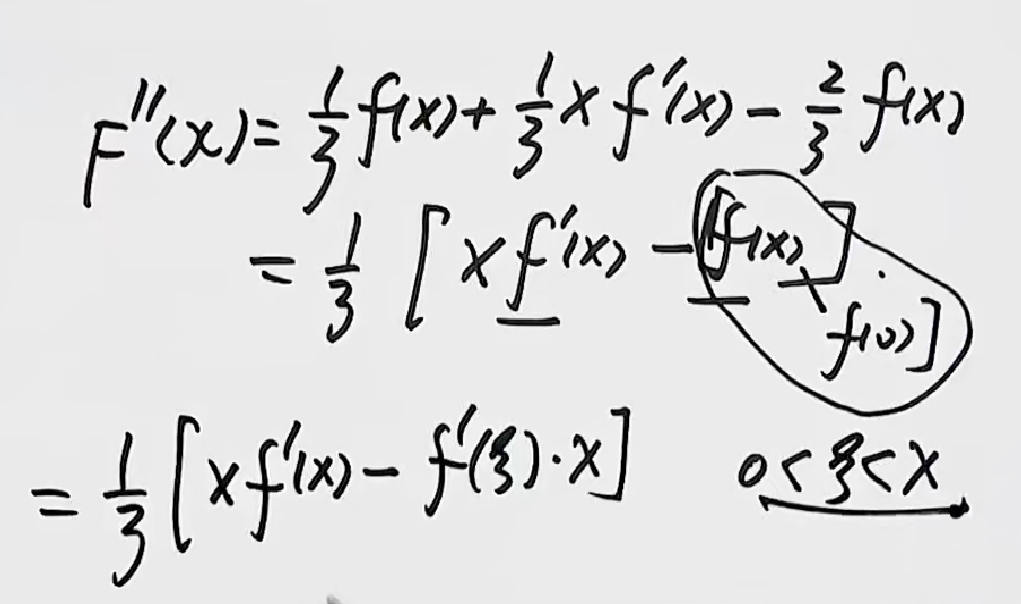 F''(x) = 1/3 f(x) + 1/3 x f'(x) - 2/3 f(x)
= 1/3 [x f'(x) - [f(x)].
- f(0)]
= 1/3 [x f'(x) - f'(ξ)·x] 0<ξ<x